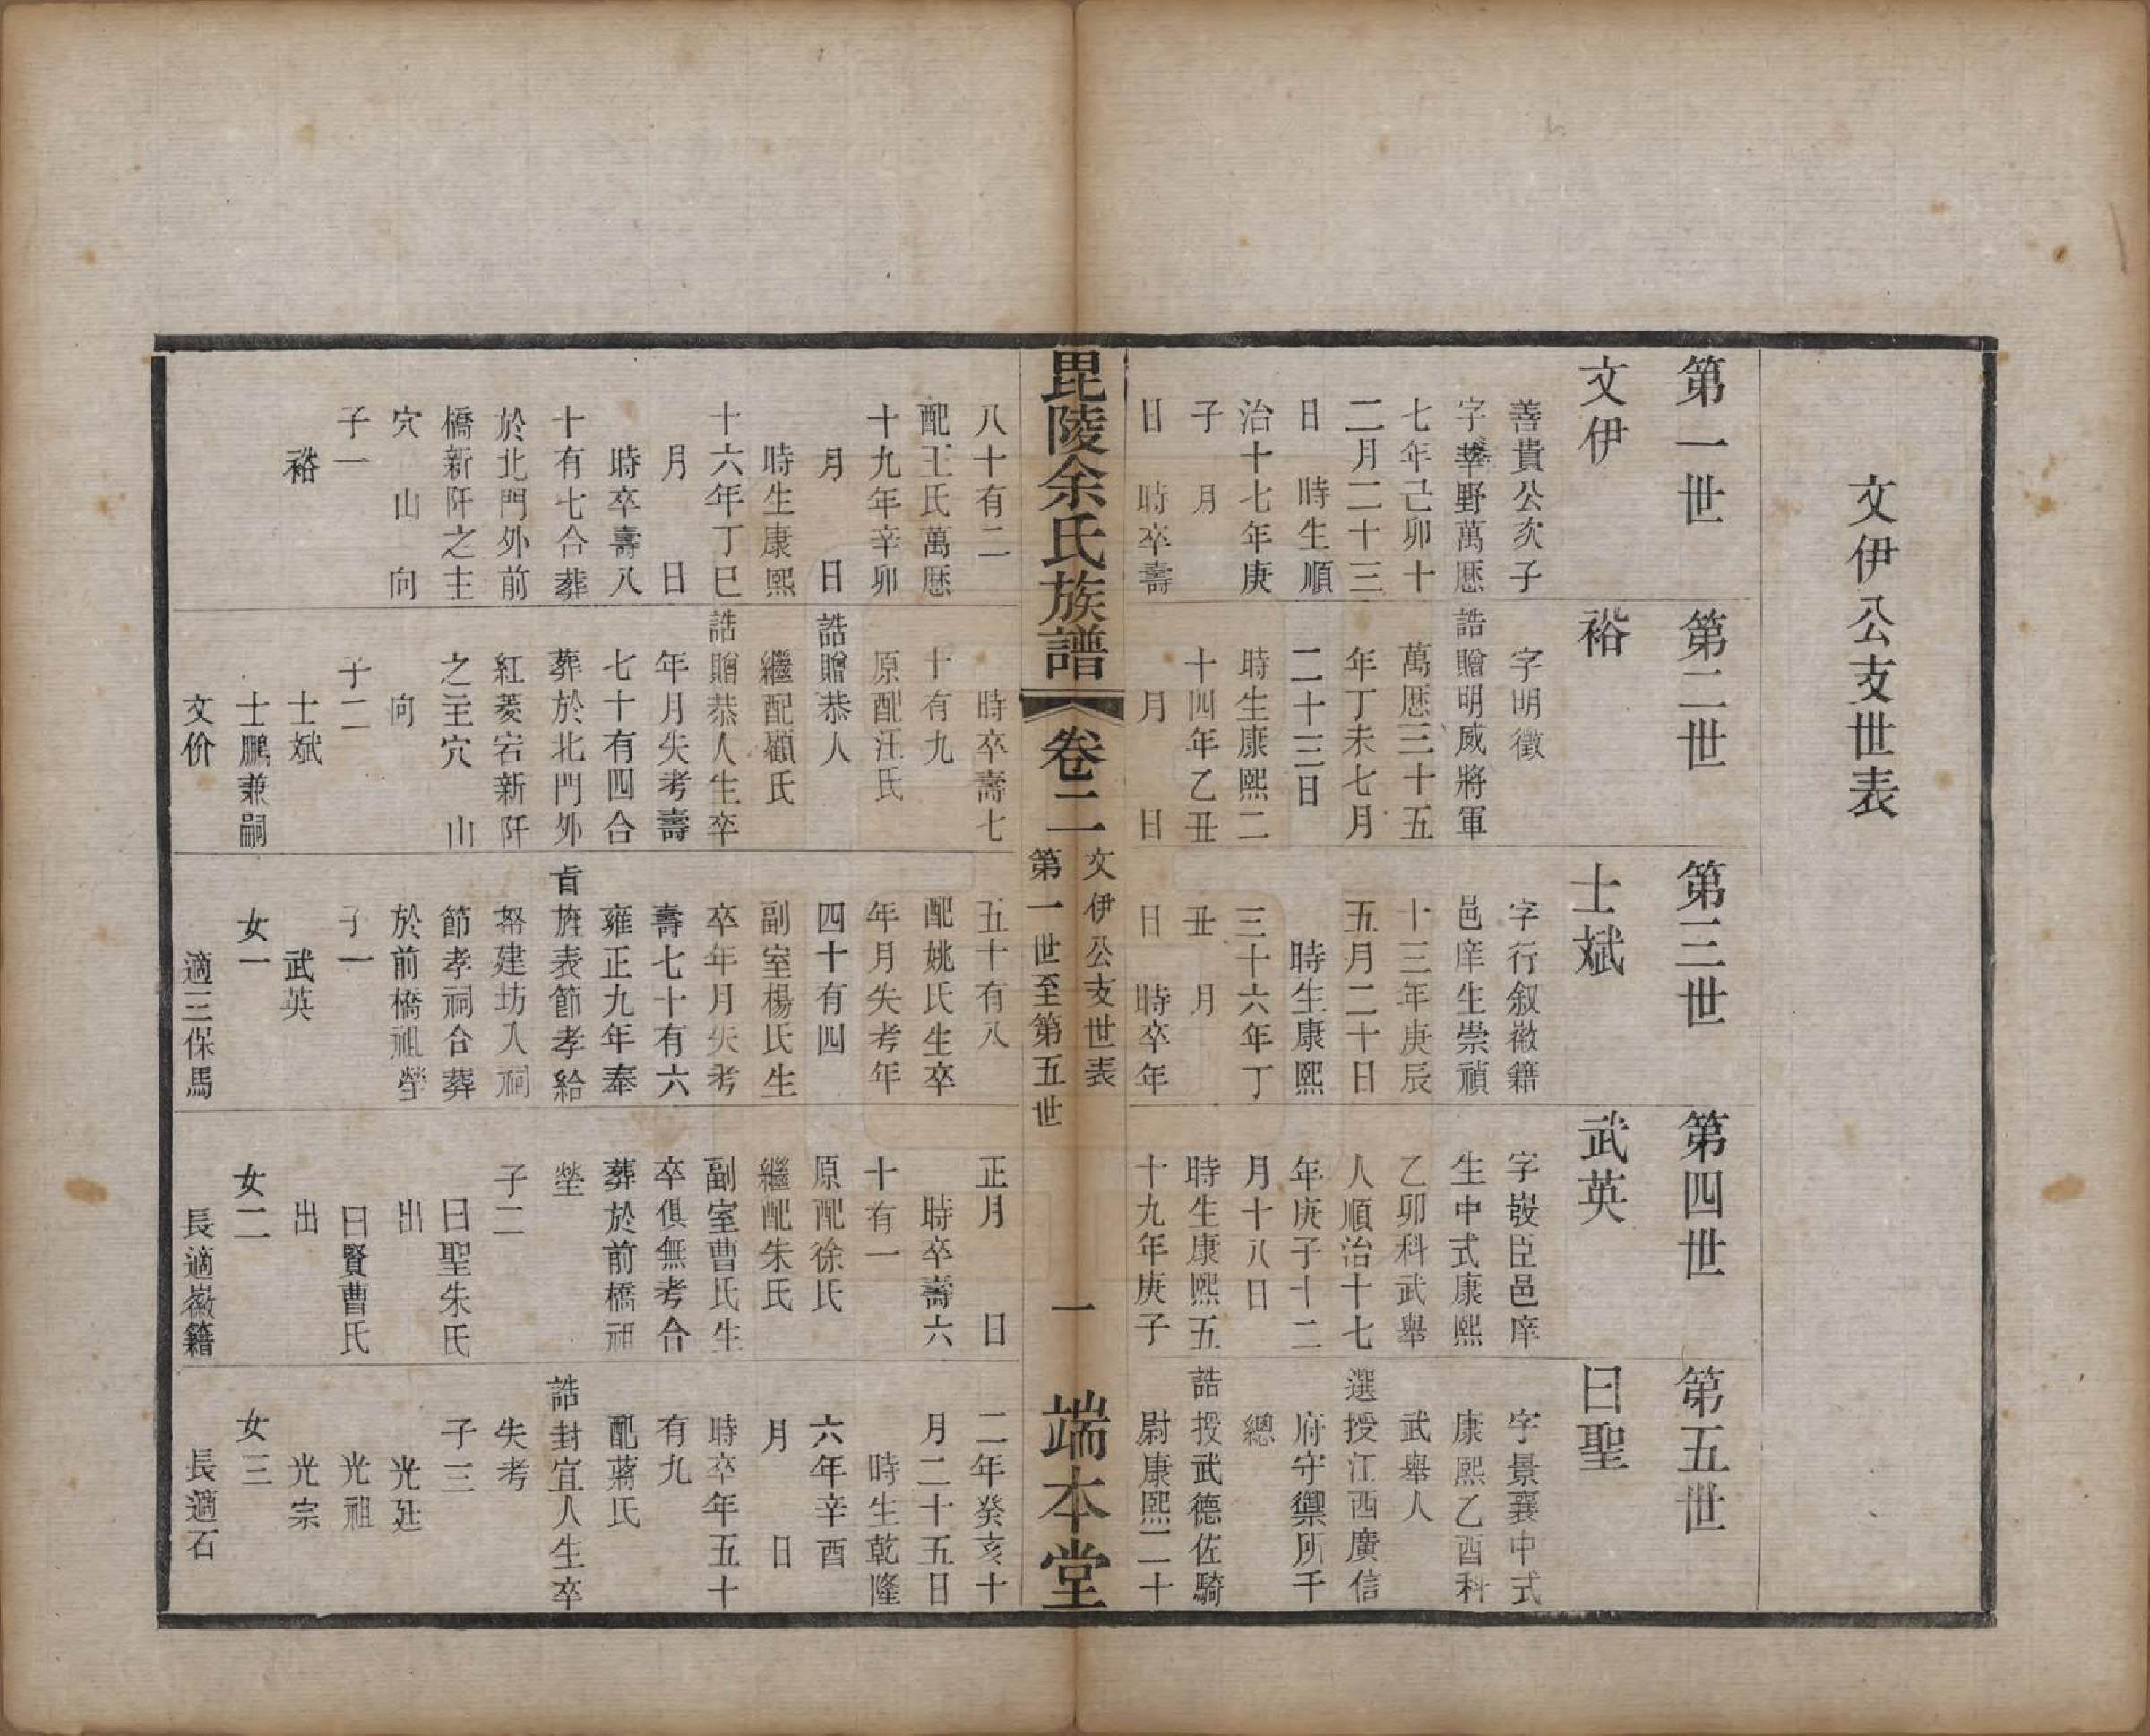 文伊公支世表
第一世
文伊
善貴公次子
字莘野萬歷
七年己卯十
二月二十三
日　時生順
治十七年庚
子　月
日　時卒壽
八十有二
配王氏萬歷
十九年辛卯
月　　日
時生康熙
十六年丁巳
月　　日
時卒壽八
十有七合葬
於北門外前
橋新阡之主
穴　山　向
子一
裕
第二世
裕
字明徵
誥贈明威將軍
萬歷三十五
年丁未七月
二十三日
時生康熙二
十四年乙丑
月　　日
時卒壽七
十有九
原配汪氏
誥贈恭人
繼配顧氏
誥贈恭人生卒
年月失考壽
七十有四合
葬於北門外
紅菱宕新阡
之主穴　山
向
子二
士斌
士鵬兼嗣
文价
第三世
士斌
字行叙徽籍
邑庠生崇禎
十三年庚辰
五月二十日
時生康熙
三十六年丁
丑　月
日　時卒年
五十有八
配姚氏生卒
年月失考年
四十有四
副室楊氏生
卒年月失考
壽七十有六
雍正九年奉
旨旌表節孝給
帑建坊入祠
節孝祠合葬
於前橋祖塋
子一
武英
女一
適三保馬
第四世
武英
字嵏臣邑庠
生中式康熙
乙卯科武舉
人順治十七
年庚子十二
月十八日
時生康熙五
十九年庚子
正月　　日
時卒壽六
十有一
原配徐氏
繼配朱氏
副室曹氏生
卒俱無考合
葬於前橋祖
塋
子二
曰聖朱氏
出
曰賢曹氏
出
女二
長適徽籍
第五世
曰聖
字景襄中式
康熙乙酉科
武舉人
選授江西廣信
府守禦所千
總
誥授武德佐騎
尉康熙二十
二年癸亥十
月二十五日
時生乾隆
六年辛酉
月　　日
時卒年五十
有九
配蔣氏
誥封宜人生卒
失考
子三
光廷
光祖
光宗
女三
長適石
毘陵余氏族譜
卷二
文伊公支世表
第一世至第五世
一
端本堂